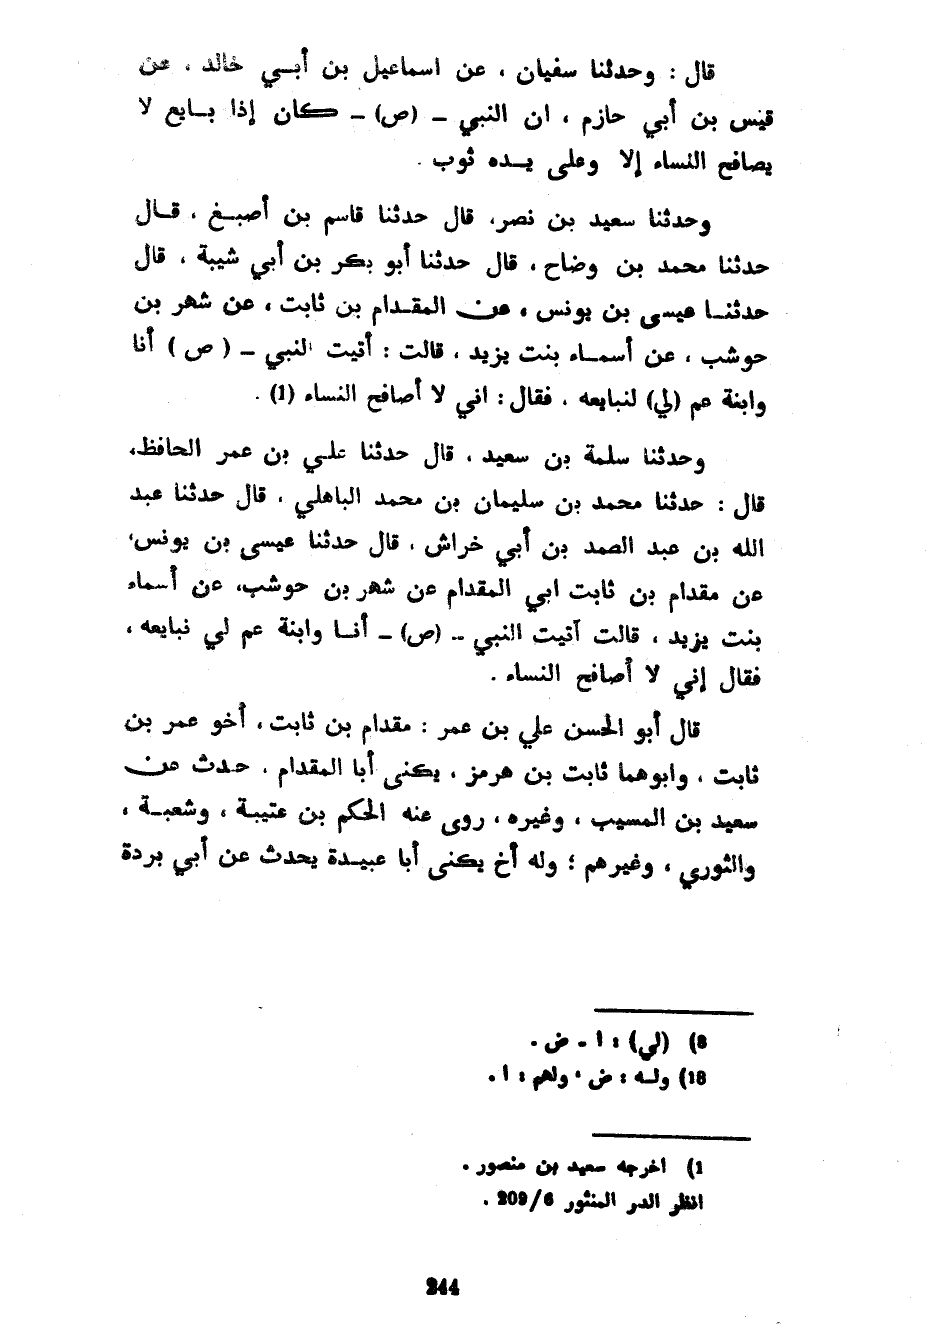 قال : وحدثنا سفيان ، عن اسماعيل بن أبـي خالد ، عن
قيس بن أبي حازم ، ان النبي ـ (ص) ـ كان إذا بـايع لا
يصافح النساء إلا وعلى يـده ثوب .
وحدثنا سعيد بن نصر، قال حدثنا قاسم بن أصبـغ ، قـال
حدثنا محمد بن وضاح ، قال حدثنا أبو بكر بن أبي شيبة ، قال
حدثنـا عيسى بن يونس ، عن المقـدام بن ثابت ، عن شهر بن
حوشب ، عن أسمـاء بنت يزيد ، قالت : أتيت النبي ـ ( ص ) أنا
وابنة عم (لي) لنبايعه ، فقال : اني لا أصافح النساء (1) .
وحدثنا سلمة بن سعيد ، قال حدثنا علـي بن عمر الحافظ،
قال : حدثنا محمد بن سليمان بن محمد الباهلي ، قال حدثنا عبد
الله بن عبد الصمد بن أبي خراش ، قال حدثنا عيسى بن يونس،
عن مقدام بن ثابت ابي المقدام عن شهر بن حوشب، عن أسماء
بنت يزيد ، قالت آتيت النبي ـ (ص) ـ أنـا وابنة عم لي نبايعه ،
فقال إني لا أصافح النساء .
قال أبو الحسن علي بن عمر : مقدام بن ثابت ، أخو عمر بن
ثابت ، وابوهما ثابت بن هرمز ، يكنى أبا المقدام ، حدث عن
سعيد بن المسيب ، وغيره ، روى عنه الحكم بن عتيبة ، وشعبـة ،
والثوري ، وغيرهم ؛ وله أخ يكنى أبا عبيـدة يحدث عن أبي بردة
8) (لي) : ا ـ ض .
18) ولـه : ض ، ولهم : ا .
1) اخرجه سعيد بن منصور .
انظر الدر المنثور 6/209 .
244